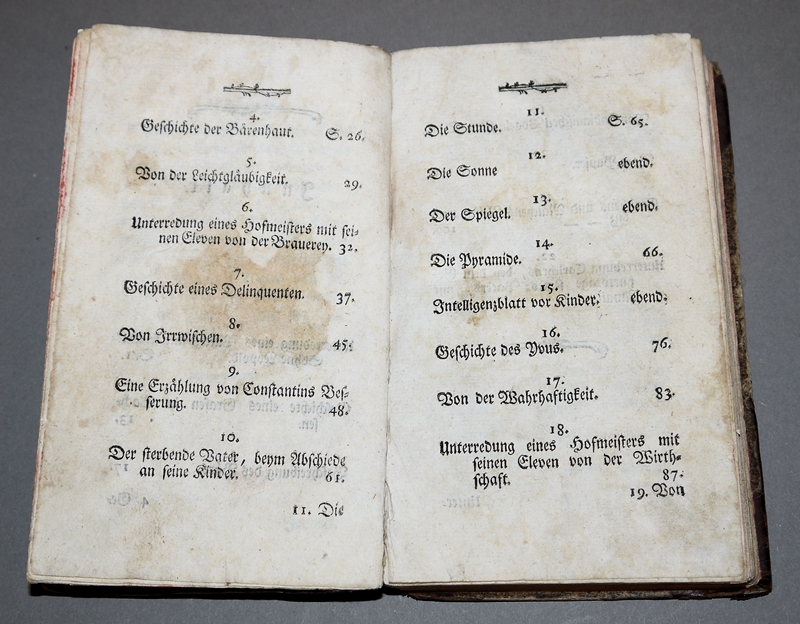 4.
Geschichte der Bärenhaut. S. 26.
5.
Von der Leichtgläubigkeit. 29.
6.
Unterredung eines Hofmeisters mit sei-
nen Eleven von der Brauerey. 32.
7.
Geschichte eines Delinquenten. 37.
8.
Von Irrwischen. 45.
9.
Eine Erzählung von Constantins Bes-
serung. 48.
10.
Der sterbende Vater, beym Abschiede
an seine Kinder. 61.
11. Die
11.
Die Stunde. S. 65.
12.
Die Sonne ebend.
13.
Der Spiegel. ebend.
14.
Die Pyramide. 66.
15.
Intelligenzblatt vor Kinder. ebend.
16.
Geschichte des Yvus. 76.
17.
Von der Wahrhaftigkeit. 83.
18.
Unterredung eines Hofmeisters mit
seinen Eleven von der Wirth-
schaft. 87.
19. Von